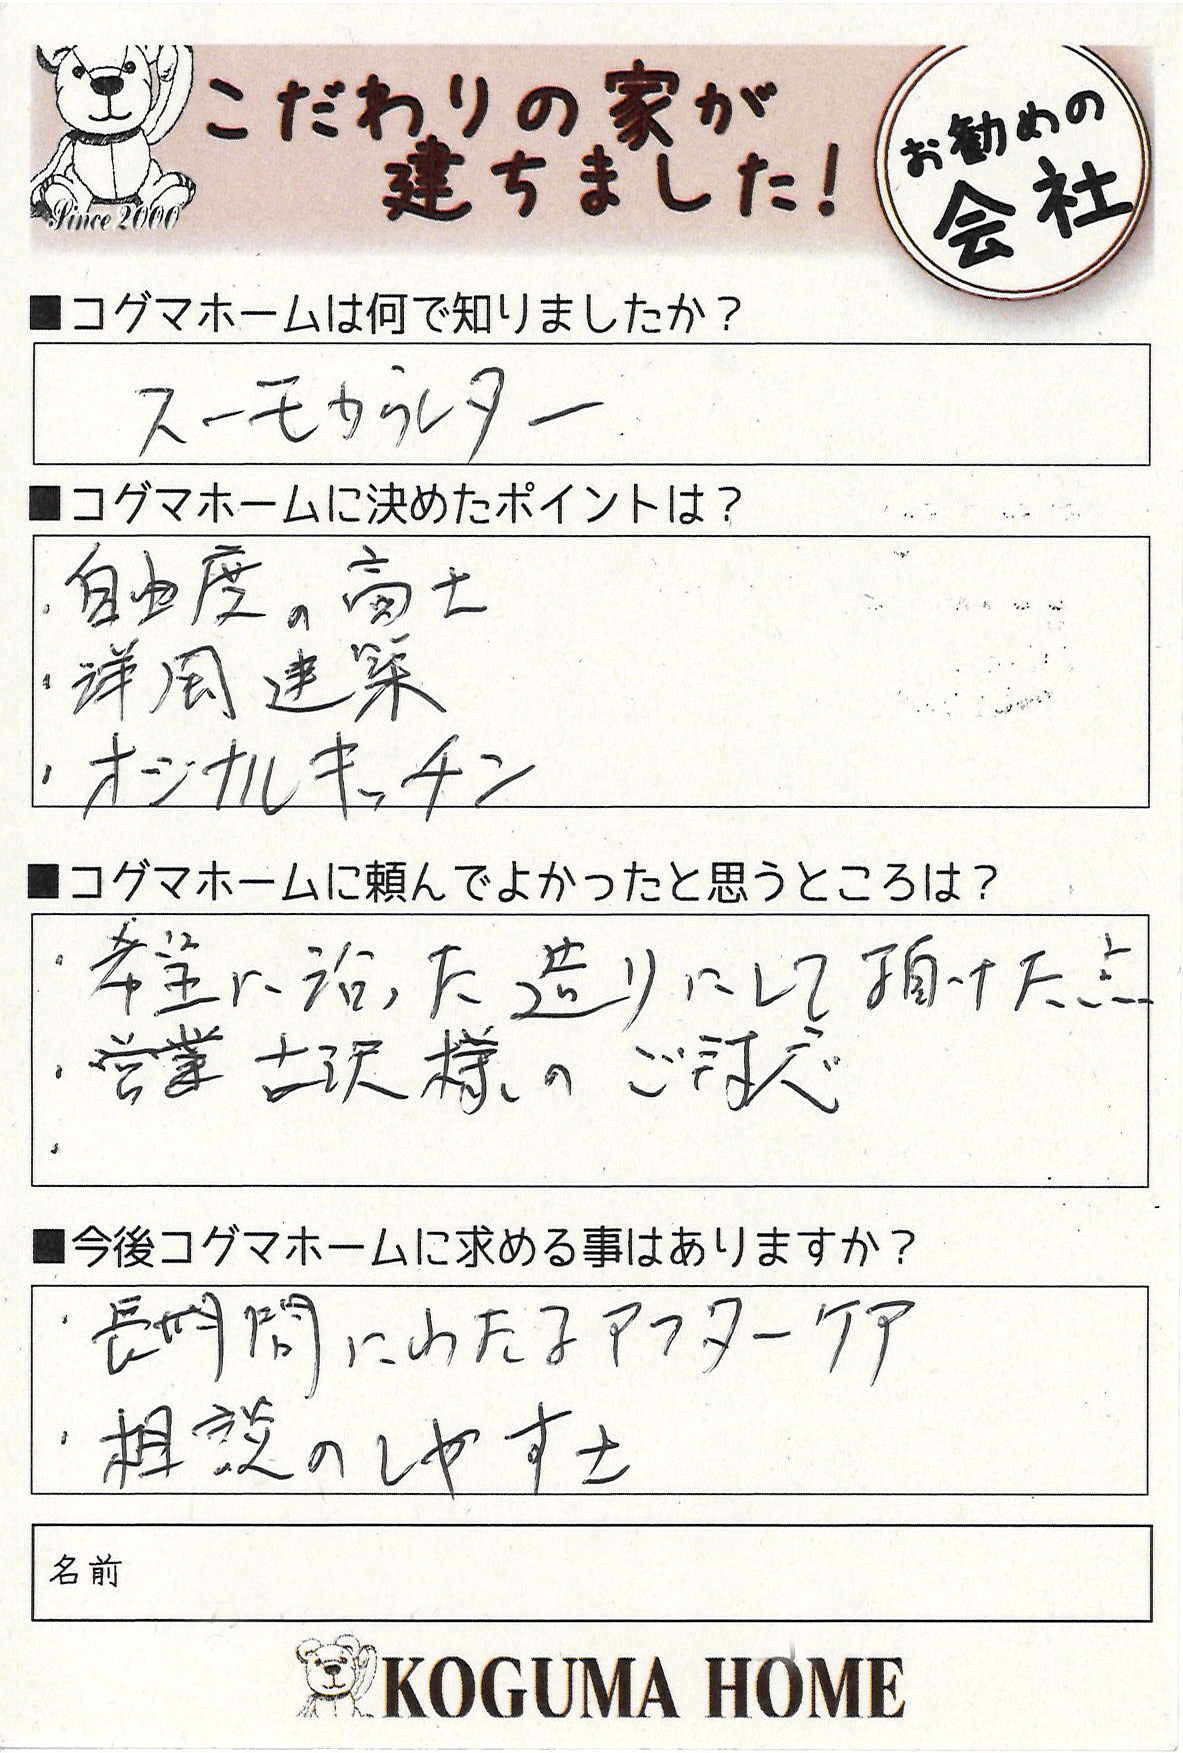 こだわりの家が
建ちました!
お勧めの
会社
Since 2000
■コグマホームは何で知りましたか？
スーモカウンター
■コグマホームに決めたポイントは？
・自由度の高さ
・洋風建築
・オリジナルキッチン
■コグマホームに頼んでよかったと思うところは？
・希望に沿った造りにして頂けた点
・営業 古沢様のご対応
・
■今後コグマホームに求める事はありますか？
・長期間にわたるアフターケア
・相談のしやすさ
名前
KOGUMA HOME